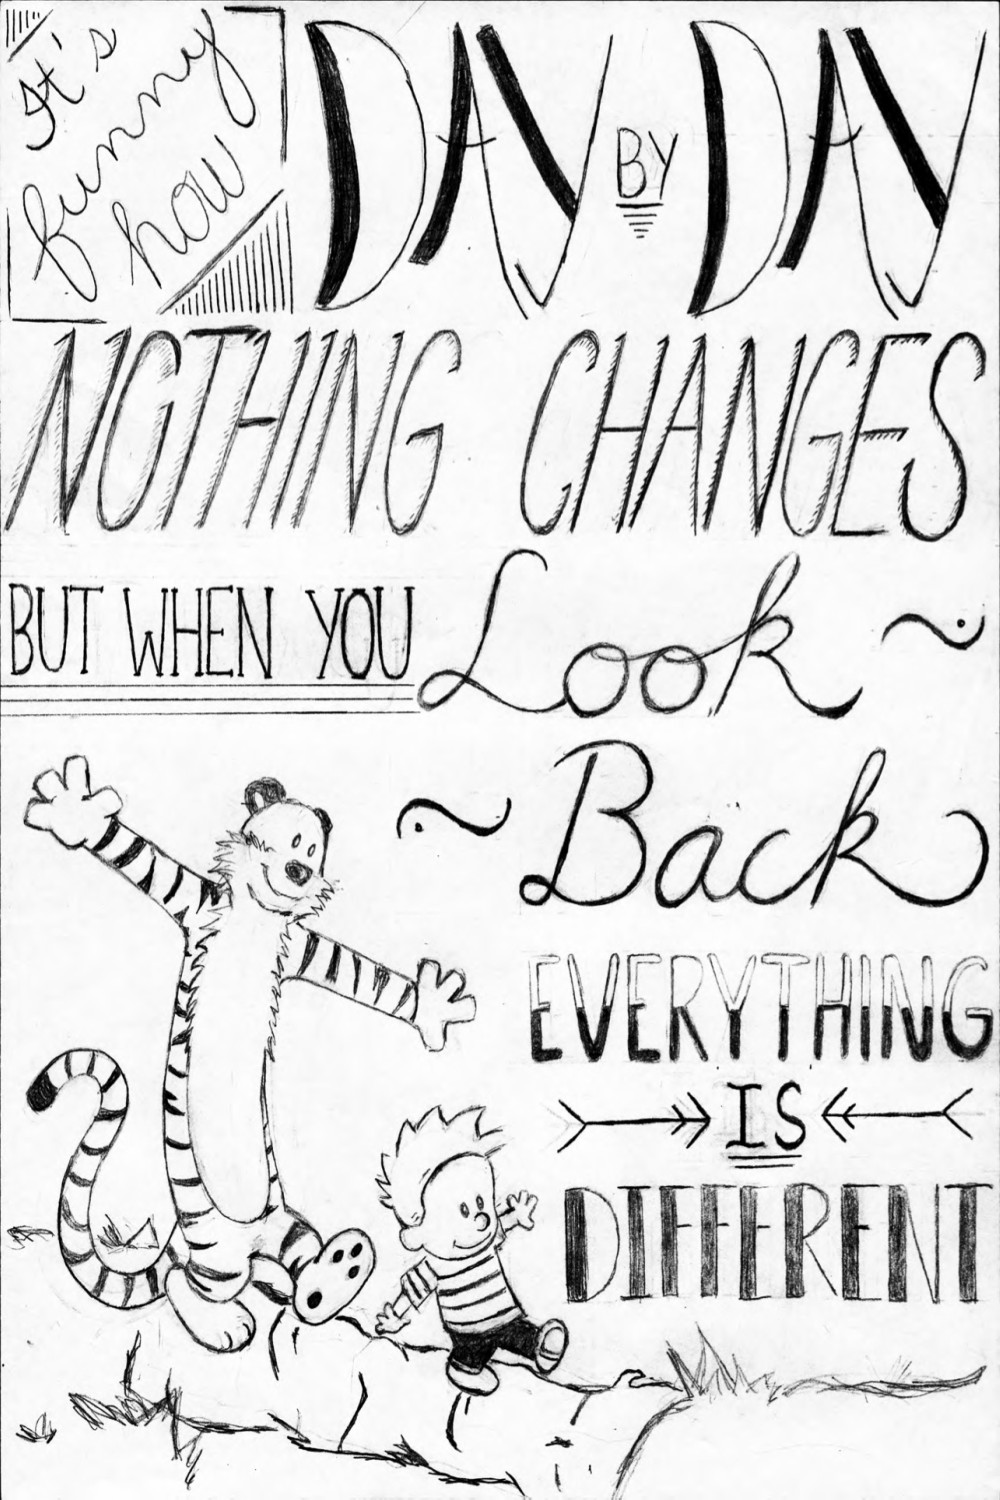 It's
funny
how
DAY BY DAY
NOTHING CHANGES
BUT WHEN YOU Look
Back
EVERYTHING
IS
DIFFERENT